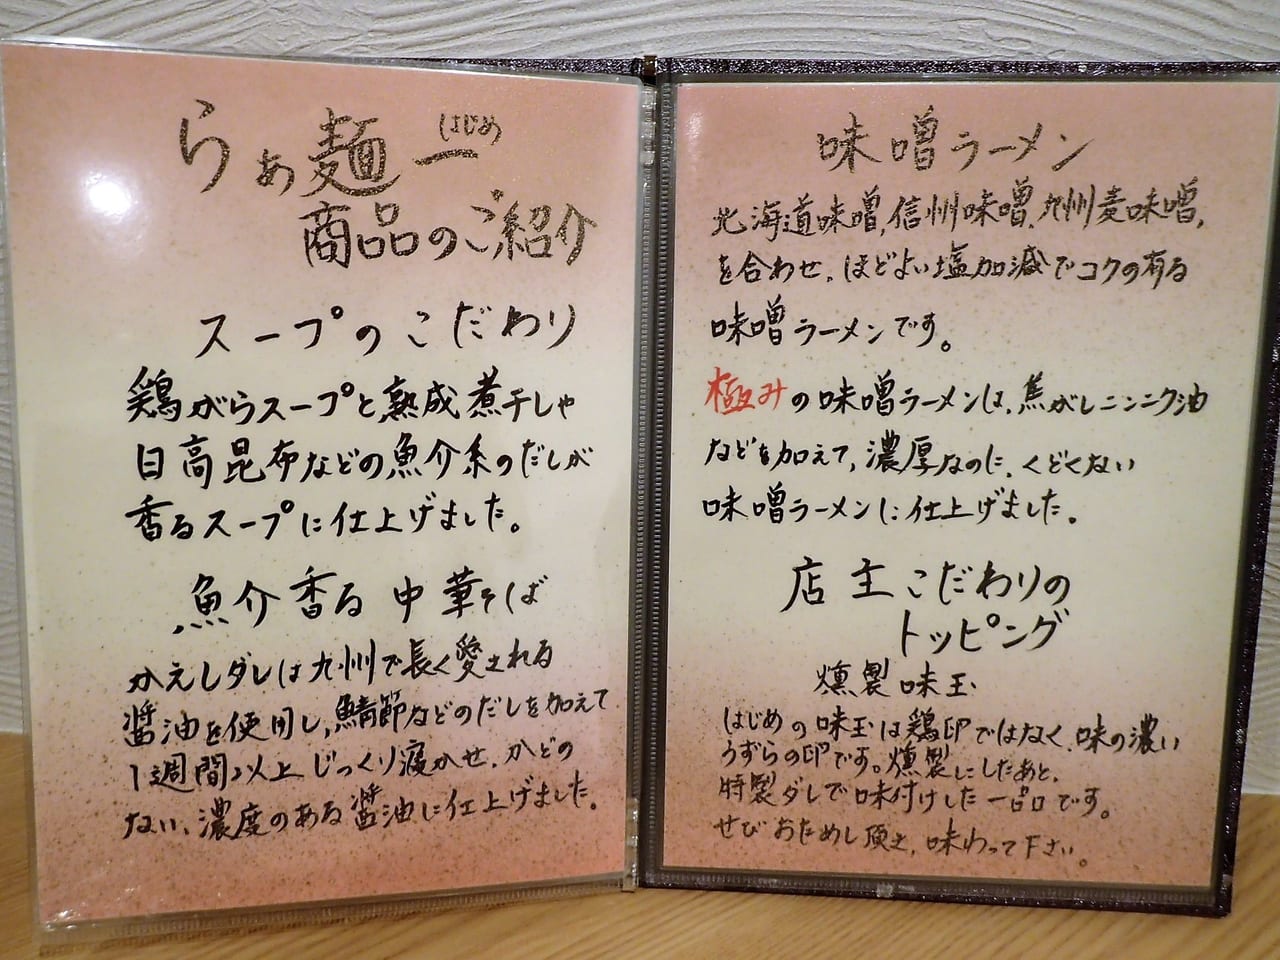 らぁ麺 一
はじめ
商品のご紹介
スープのこだわり
鶏がらスープと熟成煮干しや
日高昆布などの魚介系のだしが
香るスープに仕上げました。
魚介香る中華そば
かえしダレは九州で長く愛される
醤油を使用し、鯖節などのだしを加えて
1週間以上じっくり寝かせ、かどの
ない、濃度のある醤油に仕上げました。
味噌ラーメン
北海道味噌,信州味噌,九州麦味噌,
を合わせ、ほどよい塩加減でコクの有る
味噌ラーメンです。
極みの味噌ラーメンは、焦がしニンニク油
などを加えて、濃厚なのに、くどくない
味噌ラーメンに仕上げました。
店主こだわりの
トッピング
燻製味玉
はじめの味玉は鶏卵ではなく、味の濃い
うずらの卵です。燻製にしたあと、
特製ダレで味付けした一品です。
ぜひおためし頂き、味わって下さい。